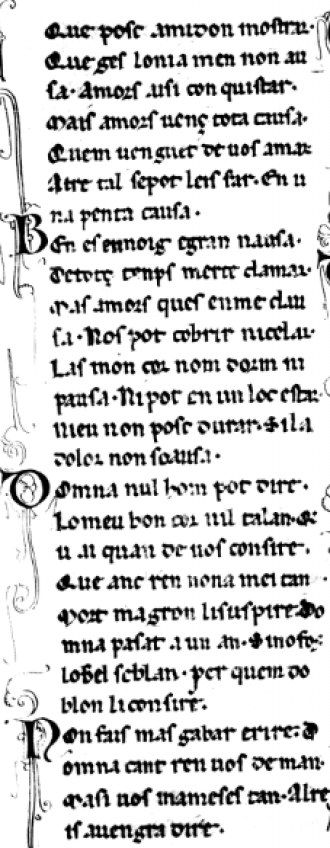 Que posc amidon mostrar.
Que ges lonia men non au
sa. Amors aisi con quistar.
Mais amors uenç tota causa.
Quem uenguet de uos amar
Atre tal sepot leis far. En u
na penta causa.
BEn es ennoig egran nausa.
De totç temps merce clamar.
Mas amors ques enme clau
sa. Nos pot cobrir nicelar.
Las mon cor nom dorm ni
pausa. Ni pot en un loc estar.
Nieu non posc durar. Sila
dolor non soausa.
DOmna nul hom pot dire.
Lo meu bon cor nil talan. Q
u ai quan de uos consire.
Que anc ren non amei tan
Mort magron li suspire. Do
mna pasat a un an. Sinofos
lobel seblan. per quem do
blon li consire.
NOn fais mas gabar erire. D
omna cant ren uos deman.
Masi uos mameses tan. Alre
is auengra dire.